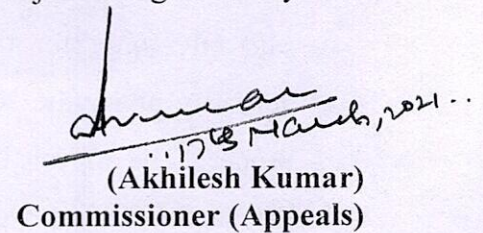 17th March, 2021..
(Akhilesh Kumar)
Commissioner (Appeals)